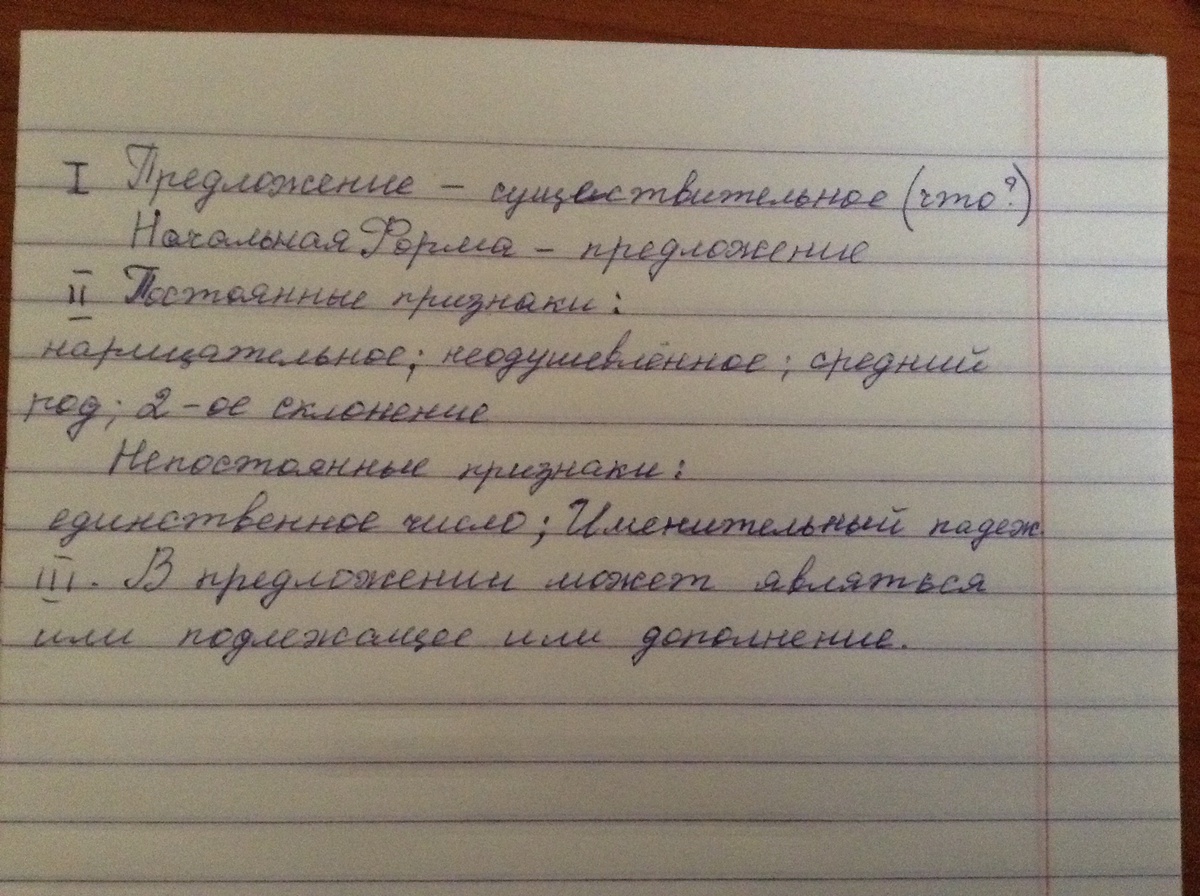 I Предложение – существительное (что?)
Начальная Форма – предложение
II Постоянные признаки:
нарицательное; неодушевлённое; средний
род; 2-ое склонение
Непостоянные признаки:
единственное число; Именительный падеж.
III. В предложении может являться
или подлежащее или дополнение.